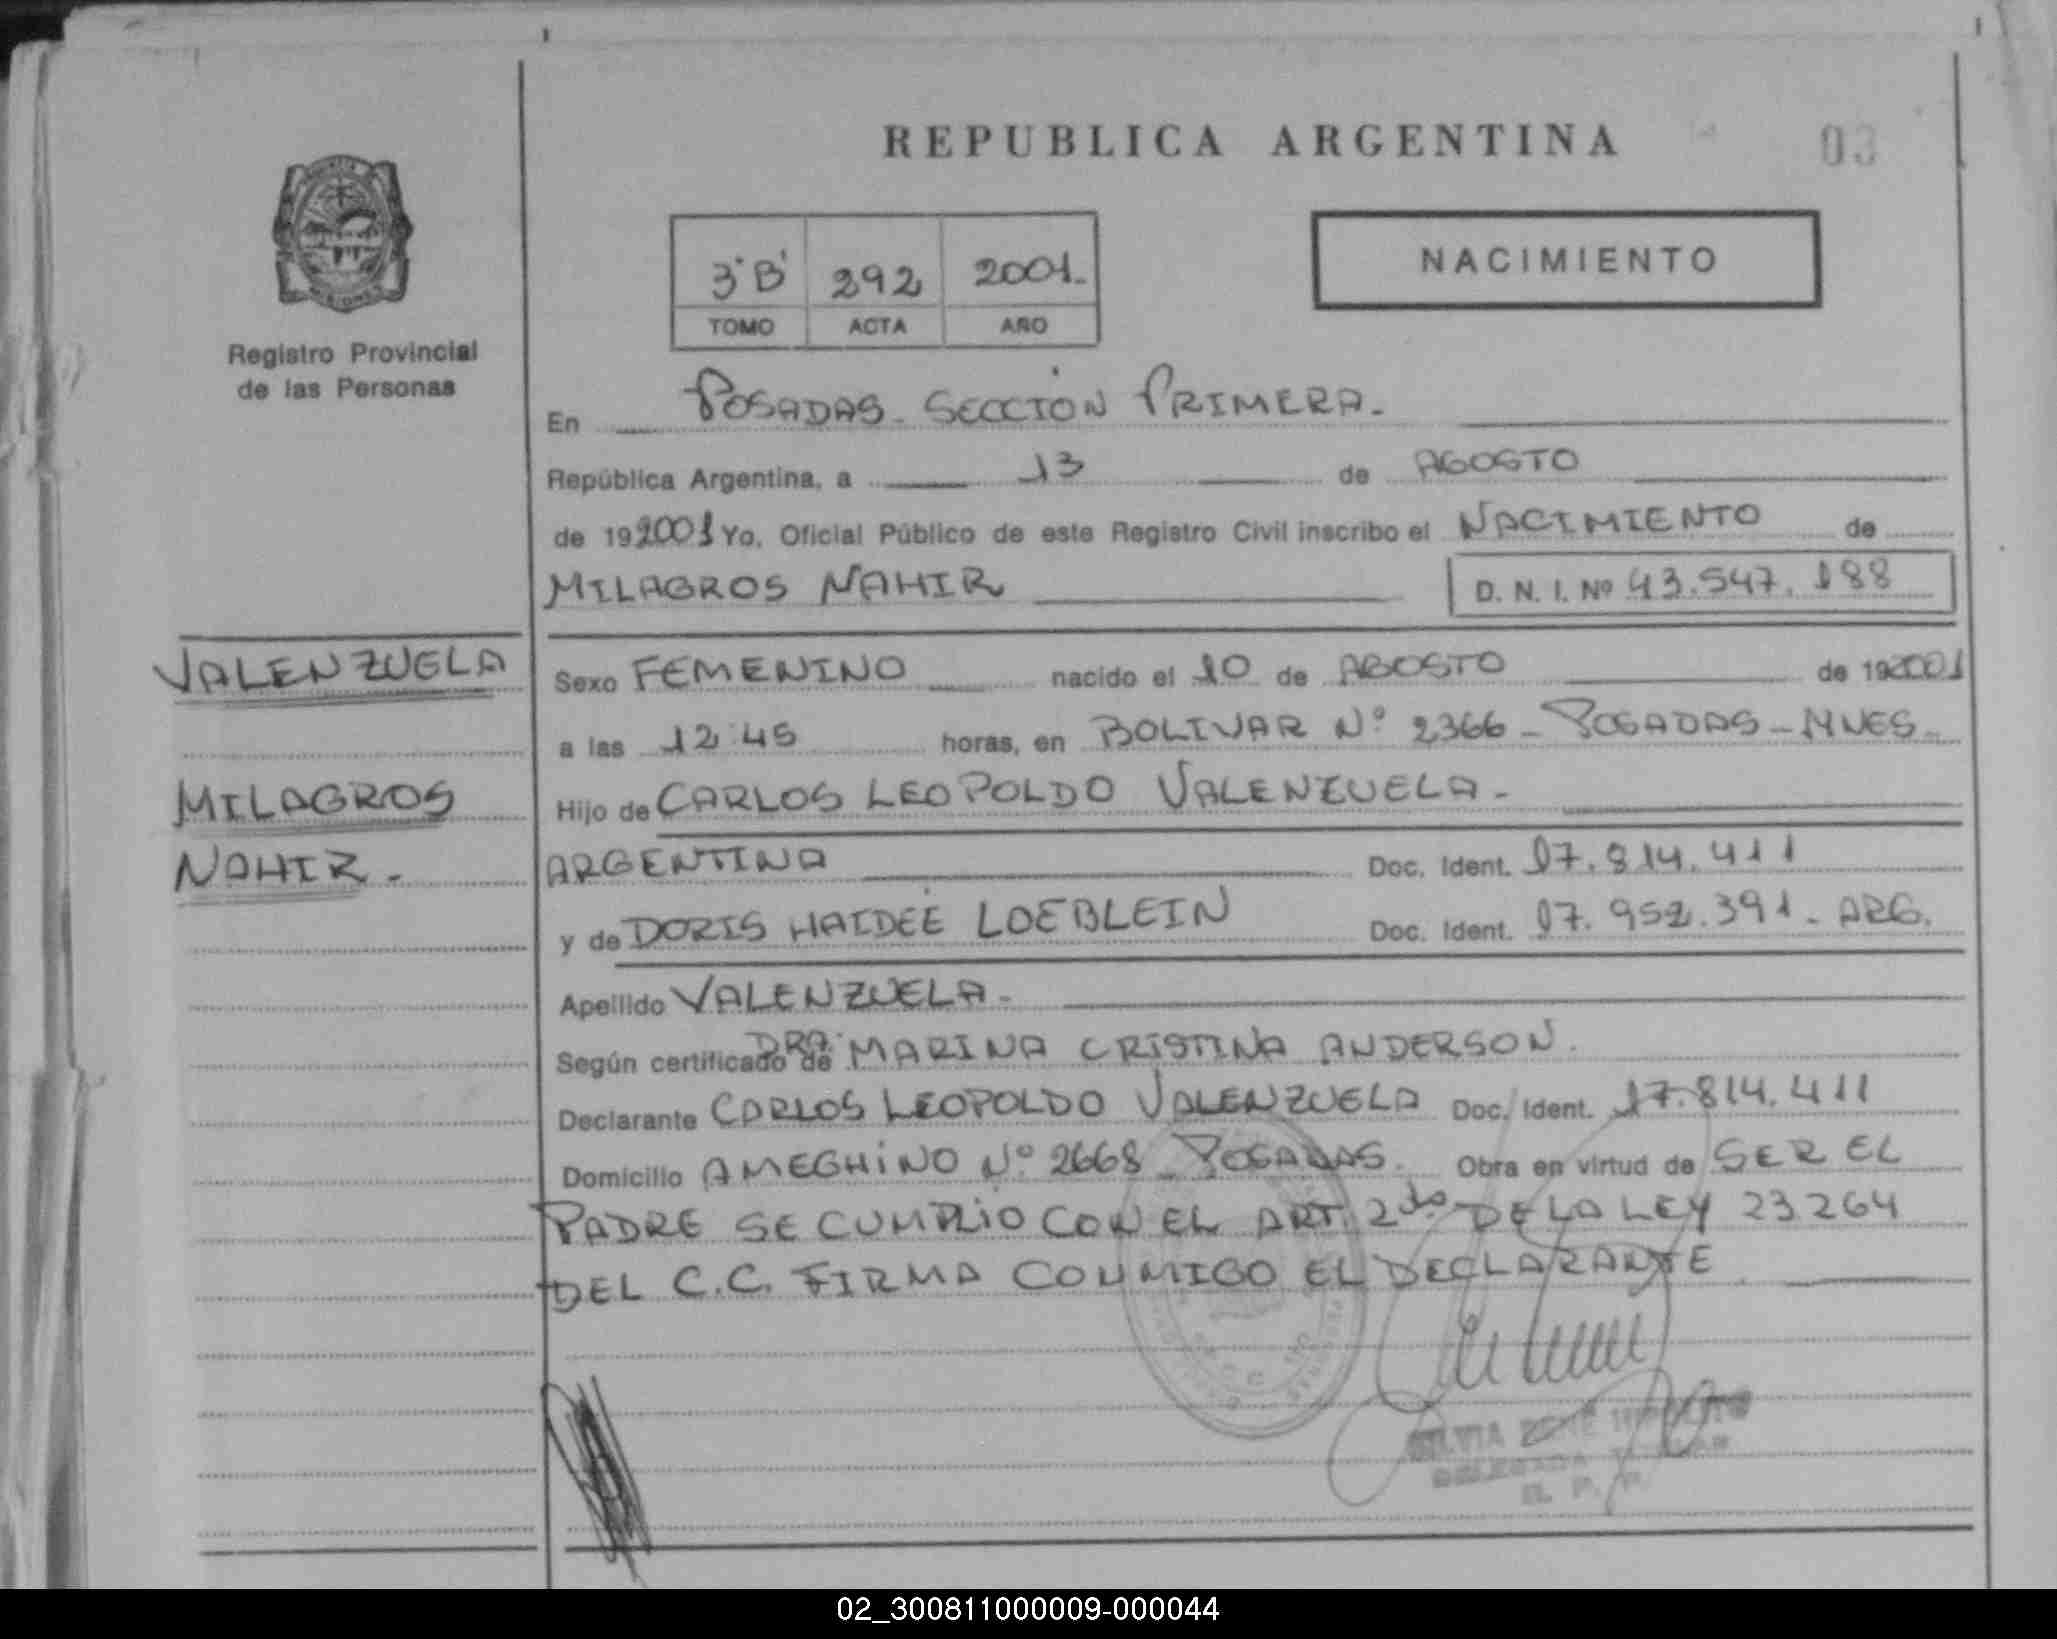 REPUBLICA ARGENTINA
03
3°B' 292 2001.
TOMO ACTA AÑO
NACIMIENTO
Registro Provincial
de las Personas
En POSADAS - SECCION PRIMERA -
República Argentina, a 13 de AGOSTO
de 192001 Yo, Oficial Público de este Registro Civil inscribo el NACIMIENTO de
MILAGROS NAHIR D. N. I. Nº 43.547.188
VALENZUELA
MILAGROS
NAHIR -
Sexo FEMENINO nacido el 10 de AGOSTO de 192001
a las 12:45 horas, en BOLIVAR Nº 2366 - POSADAS - MNES -
Hijo de CARLOS LEOPOLDO VALENZUELA -
ARGENTINA Doc. Ident. 17.814.411
y de DORIS HAIDEE LOEBLEIN Doc. Ident. 17.952.391 - ARG.
Apellido VALENZUELA -
Según certificado de DRA. MARINA CRISTINA ANDERSON.
Declarante CARLOS LEOPOLDO VALENZUELA Doc. Ident. 17.814.411
Domicilio AMEGHINO Nº 2668 - POSADAS. Obra en virtud de SER EL
PADRE SE CUMPLIO CON EL ART. 2do DE LA LEY 23264
DEL C.C. FIRMA CONMIGO EL DECLARANTE
SILVIA RENE
DELEGADA TITULAR
R. P. P.
02_300811000009-000044